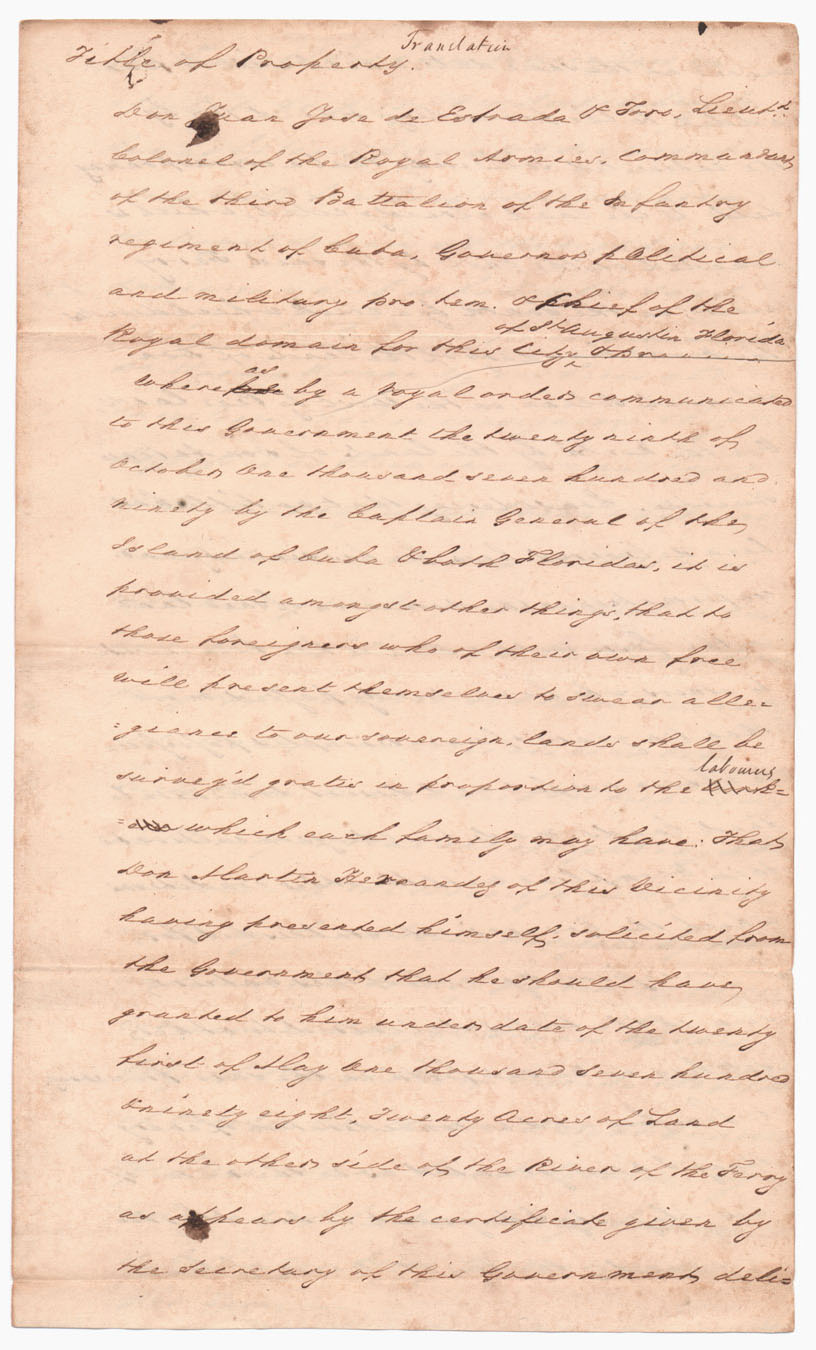 Translation
Title of Property.
Don Juan Jose de Estrada & Toro, Lieutt.
Colonel of the Royal Armies, Commandant
of the third Battalion of the Infantry
regiment of Cuba, Governor political
and military pro. tem. & Chief of the
of St Augustin Florida
Royal domain for this City, &
as
Where by a royal order communicated
to this Government the twenty ninth of
October One thousand seven hundred and
ninety by the Captain General of the
Island of Cuba & both Floridas, it is
provided amongst other things, that to
those foreigners who of their own free
will present themselves to swear alle=
=giance to our sovereign, lands shall be
labourers
survey'd gratis in proportion to the
which each family may have: That
Don Martin Hernandez of this Vicinity
having presented himself, solicited from
the Government that he should have
granted to him under date of the twenty
first of May One thousand seven hundred
& ninety eight, Twenty Acres of Land
at the other side of the River of the Ferry
as appears by the certificate given by
the Secretary of this Government deli=